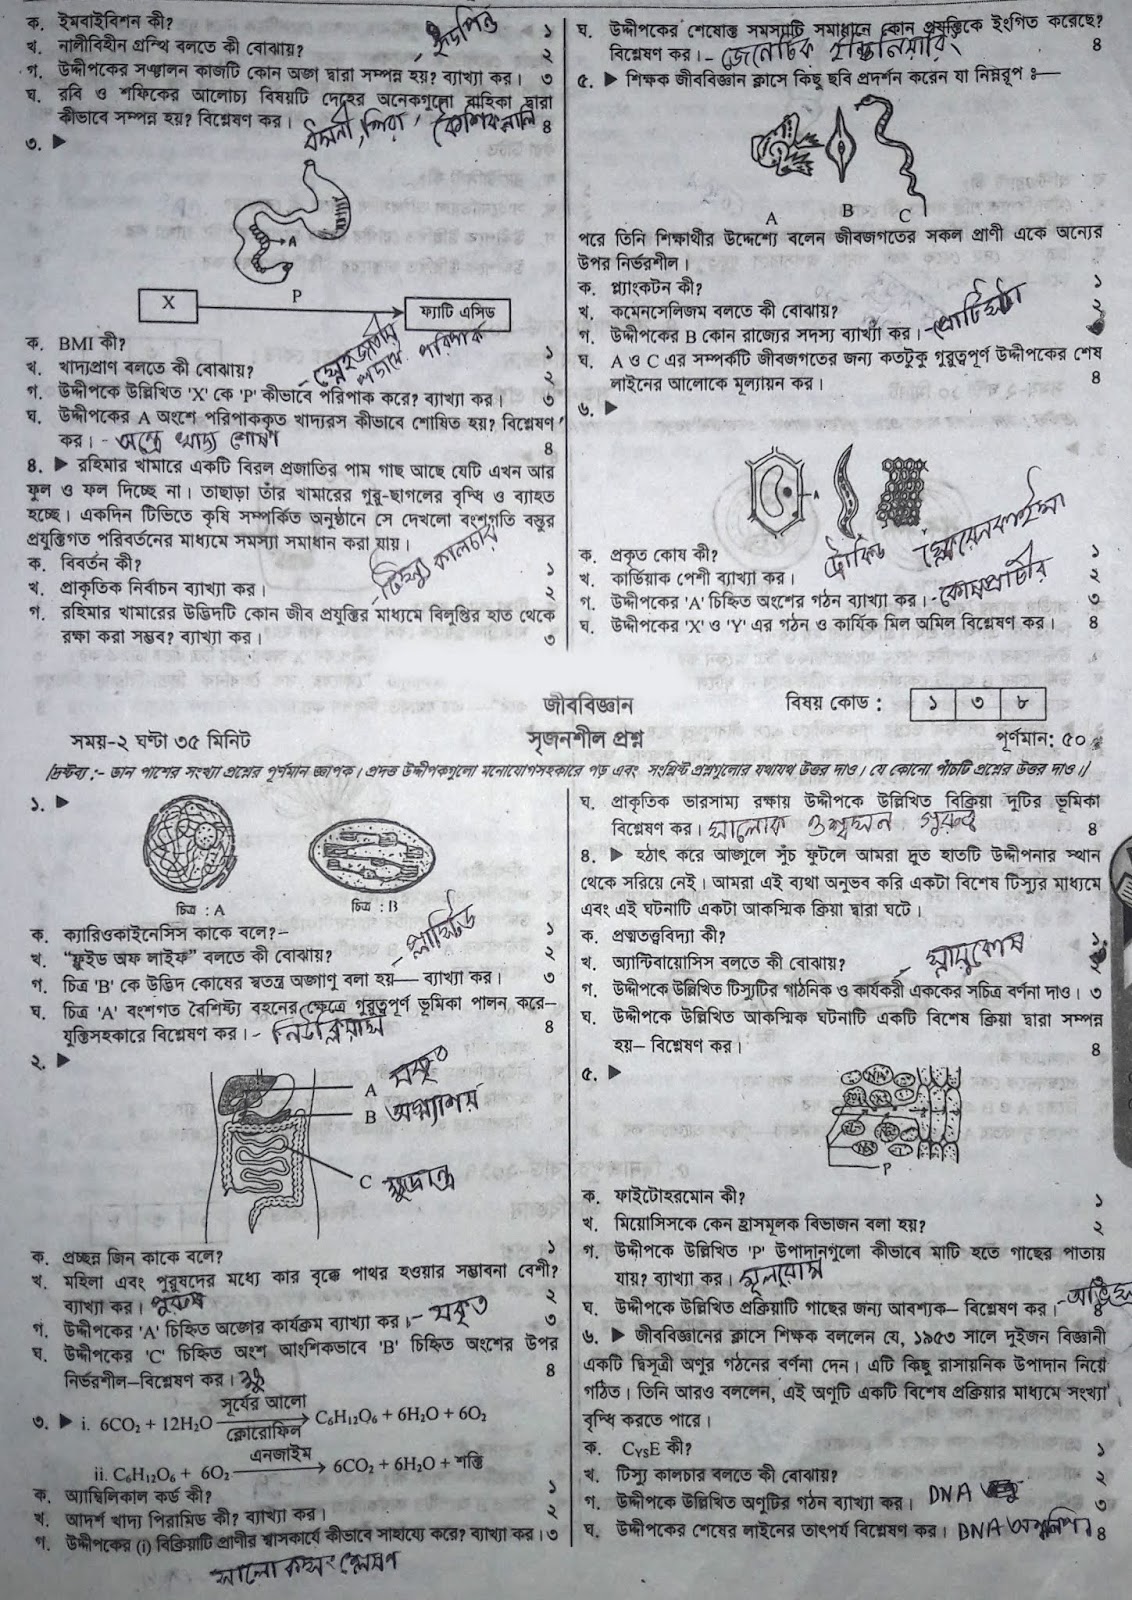 ক. ইমবাইবিশন কী? ১
খ. নালীবিহীন গ্রন্থি বলতে কী বোঝায়? ২
গ. উদ্দীপকের সঞ্চালন কাজটি কোন অঙ্গ দ্বারা সম্পন্ন হয়? ব্যাখ্যা কর। ৩
হৃদপিন্ড
ঘ. রবি ও শফিকের আলোচ্য বিষয়টি দেহের অনেকগুলো বাহিকা দ্বারা
কীভাবে সম্পন্ন হয়? বিশ্লেষণ কর। ৪
ধমনী, শিরা, কৈশিকনালি
৩. ▶
A
X
P
ফ্যাটি এসিড
ক. BMI কী? ১
খ. খাদ্যপ্রাণ বলতে কী বোঝায়? ২
গ. উদ্দীপকে উল্লিখিত 'X' কে 'P' কীভাবে পরিপাক করে? ব্যাখ্যা কর। ৩
স্নেহজাতীয় পরিপাক
ঘ. উদ্দীপকের A অংশে পরিপাককৃত খাদ্যরস কীভাবে শোষিত হয়? বিশ্লেষণ
কর। - অন্ত্রে খাদ্য শোষণ ৪
৪. ▶ রহিমার খামারে একটি বিরল প্রজাতির পাম গাছ আছে যেটি এখন আর
ফুল ও ফল দিচ্ছে না। তাছাড়া তাঁর খামারের গুরু-ছাগলের বৃদ্ধি ও ব্যাহত
হচ্ছে। একদিন টিভিতে কৃষি সম্পর্কিত অনুষ্ঠানে সে দেখলো বংশগতি বস্তুর
প্রযুক্তিগত পরিবর্তনের মাধ্যমে সমস্যা সমাধান করা যায়।
ক. বিবর্তন কী? ১
খ. প্রাকৃতিক নির্বাচন ব্যাখ্যা কর। ২
টিস্যু কালচার
গ. রহিমার খামারের উদ্ভিদটি কোন জীব প্রযুক্তির মাধ্যমে বিলুপ্তির হাত থেকে
রক্ষা করা সম্ভব? ব্যাখ্যা কর। ৩
ঘ. উদ্দীপকের শেষোক্ত সমস্যাটি সমাধানে কোন প্রযুক্তিকে ইংগিত করেছে?
বিশ্লেষণ কর। - জেনেটিক ইঞ্জিনিয়ারিং ৪
৫. ▶ শিক্ষক জীববিজ্ঞান ক্লাসে কিছু ছবি প্রদর্শন করেন যা নিম্নরূপ ঃ—
A B C
পরে তিনি শিক্ষার্থীর উদ্দেশ্যে বলেন জীবজগতের সকল প্রাণী একে অন্যের
উপর নির্ভরশীল।
ক. প্ল্যাংকটন কী? ১
খ. কমেনসেলিজম বলতে কী বোঝায়? ২
গ. উদ্দীপকের B কোন রাজ্যের সদস্য ব্যাখ্যা কর। - প্রোটিস্টা
ঘ. A ও C এর সম্পর্কটি জীবজগতের জন্য কতটুকু গুরুত্বপূর্ণ উদ্দীপকের শেষ
লাইনের আলোকে মূল্যায়ন কর। ৪
৬. ▶
A
ট্রাকিড স্ক্লেরেনকাইমা
ক. প্রকৃত কোষ কী? ১
খ. কার্ডিয়াক পেশী ব্যাখ্যা কর। ২
গ. উদ্দীপকের 'A' চিহ্নিত অংশের গঠন ব্যাখ্যা কর। - কোষপ্রাচীর ৩
ঘ. উদ্দীপকের 'X' ও 'Y' এর গঠন ও কার্যিক মিল অমিল বিশ্লেষণ কর। ৪
জীববিজ্ঞান
বিষয় কোড : ১ ৩ ৮
সময়-২ ঘণ্টা ৩৫ মিনিট
সৃজনশীল প্রশ্ন
পূর্ণমান: ৫০
[দ্রষ্টব্য :- ডান পাশের সংখ্যা প্রশ্নের পূর্ণমান জ্ঞাপক। প্রদত্ত উদ্দীপকগুলো মনোযোগসহকারে পড় এবং সংশ্লিষ্ট প্রশ্নগুলোর যথাযথ উত্তর দাও। যে কোনো পাঁচটি প্রশ্নের উত্তর দাও।]
১. ▶
চিত্র : A চিত্র : B
ক. ক্যারিওকাইনেসিস কাকে বলে?– ১
খ. “ফ্লুইড অফ লাইফ” বলতে কী বোঝায়? ২
প্লাস্টিড
গ. চিত্র 'B' কে উদ্ভিদ কোষের স্বতন্ত্র অঙ্গাণু বলা হয়— ব্যাখ্যা কর। ৩
ঘ. চিত্র 'A' বংশগত বৈশিষ্ট্য বহনের ক্ষেত্রে গুরুত্বপূর্ণ ভূমিকা পালন করে–
যুক্তিসহকারে বিশ্লেষণ কর। - নিউক্লিয়াস ৪
২. ▶
A যকৃত
B অগ্ন্যাশয়
C ক্ষুদ্রান্ত্র
ক. প্রচ্ছন্ন জিন কাকে বলে? ১
খ. মহিলা এবং পুরুষদের মধ্যে কার বৃক্কে পাথর হওয়ার সম্ভাবনা বেশী?
ব্যাখ্যা কর। পুরুষ ২
গ. উদ্দীপকের 'A' চিহ্নিত অঙ্গের কার্যক্রম ব্যাখ্যা কর। - যকৃত ৩
ঘ. উদ্দীপকের 'C' চিহ্নিত অংশ আংশিকভাবে 'B' চিহ্নিত অংশের উপর
নির্ভরশীল–বিশ্লেষণ কর। ৪
৩. ▶ i. 6CO₂ + 12H₂O সূর্যের আলো ক্লোরোফিল → C₆H₁₂O₆ + 6H₂O + 6O₂
ii. C₆H₁₂O₆ + 6O₂ এনজাইম → 6CO₂ + 6H₂O + শক্তি
ক. অ্যাম্বিলিকাল কর্ড কী? ১
খ. আদর্শ খাদ্য পিরামিড কী? ব্যাখ্যা কর। ২
গ. উদ্দীপকের (i) বিক্রিয়াটি প্রাণীর শ্বাসকার্যে কীভাবে সাহায্যে করে? ব্যাখ্যা কর। ৩
সালোকসংশ্লেষণ
ঘ. প্রাকৃতিক ভারসাম্য রক্ষায় উদ্দীপকে উল্লিখিত বিক্রিয়া দুটির ভূমিকা
বিশ্লেষণ কর। সালোক ও শ্বসন গুরুত্ব ৪
৪. ▶ হঠাৎ করে আঙ্গুলে সুঁচ ফুটলে আমরা দ্রুত হাতটি উদ্দীপনার স্থান
থেকে সরিয়ে নেই। আমরা এই ব্যথা অনুভব করি একটা বিশেষ টিস্যুর মাধ্যমে
এবং এই ঘটনাটি একটা আকস্মিক ক্রিয়া দ্বারা ঘটে।
ক. প্রত্মতত্ত্ববিদ্যা কী? ১
খ. অ্যান্টিবায়োসিস বলতে কী বোঝায়? ২
স্নায়ুকোষ
গ. উদ্দীপকে উল্লিখিত টিস্যুটির গাঠনিক ও কার্যকরী এককের সচিত্র বর্ণনা দাও। ৩
ঘ. উদ্দীপকে উল্লিখিত আকস্মিক ঘটনাটি একটি বিশেষ ক্রিয়া দ্বারা সম্পন্ন
হয়– বিশ্লেষণ কর। ৪
৫. ▶
P
ক. ফাইটোহরমোন কী? ১
খ. মিয়োসিসকে কেন হ্রাসমূলক বিভাজন বলা হয়? ২
গ. উদ্দীপকে উল্লিখিত 'P' উপাদানগুলো কীভাবে মাটি হতে গাছের পাতায়
যায়? ব্যাখ্যা কর। মূলরোম
ঘ. উদ্দীপকে উল্লিখিত প্রক্রিয়াটি গাছের জন্য আবশ্যক– বিশ্লেষণ কর। - ৪
৬. ▶ জীববিজ্ঞানের ক্লাসে শিক্ষক বললেন যে, ১৯৫৩ সালে দুইজন বিজ্ঞানী
একটি দ্বিসূত্রী অণুর গঠনের বর্ণনা দেন। এটি কিছু রাসায়নিক উপাদান নিয়ে
গঠিত। তিনি আরও বললেন, এই অণুটি একটি বিশেষ প্রক্রিয়ার মাধ্যমে সংখ্যা
বৃদ্ধি করতে পারে।
ক. CysE কী? ১
খ. টিস্যু কালচার বলতে কী বোঝায়? ২
গ. উদ্দীপকে উল্লিখিত অণুটির গঠন ব্যাখ্যা কর। DNA ৩
ঘ. উদ্দীপকের শেষের লাইনের তাৎপর্য বিশ্লেষণ কর। DNA অনুলিপন ৪